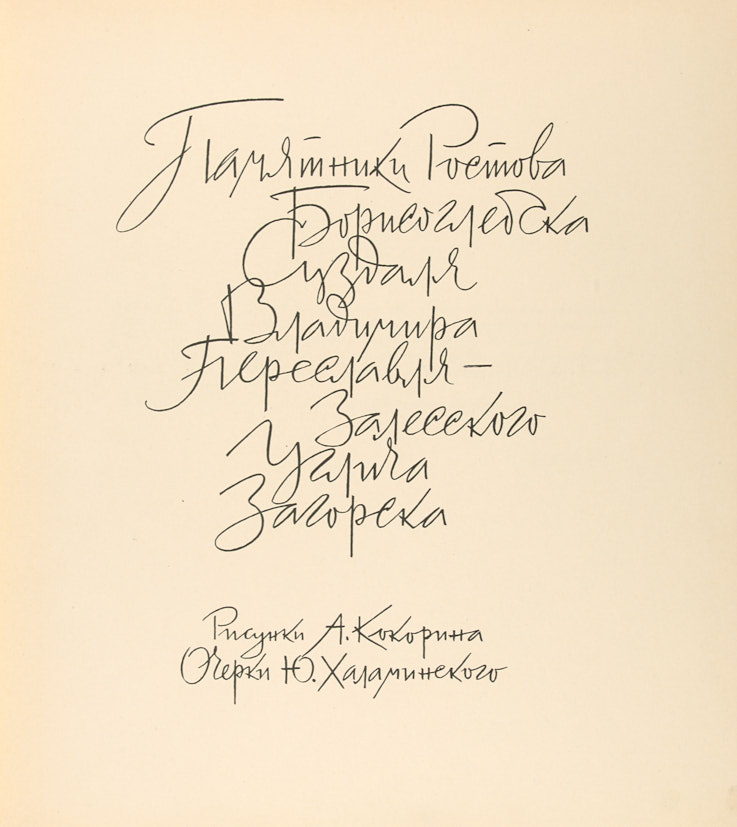 Памятники Ростова
Борисоглебска
Суздаля
Владимира
Переславля—
Залесского
Углича
Загорска
Рисунки А. Кокорина
Очерки Ю. Халаминского